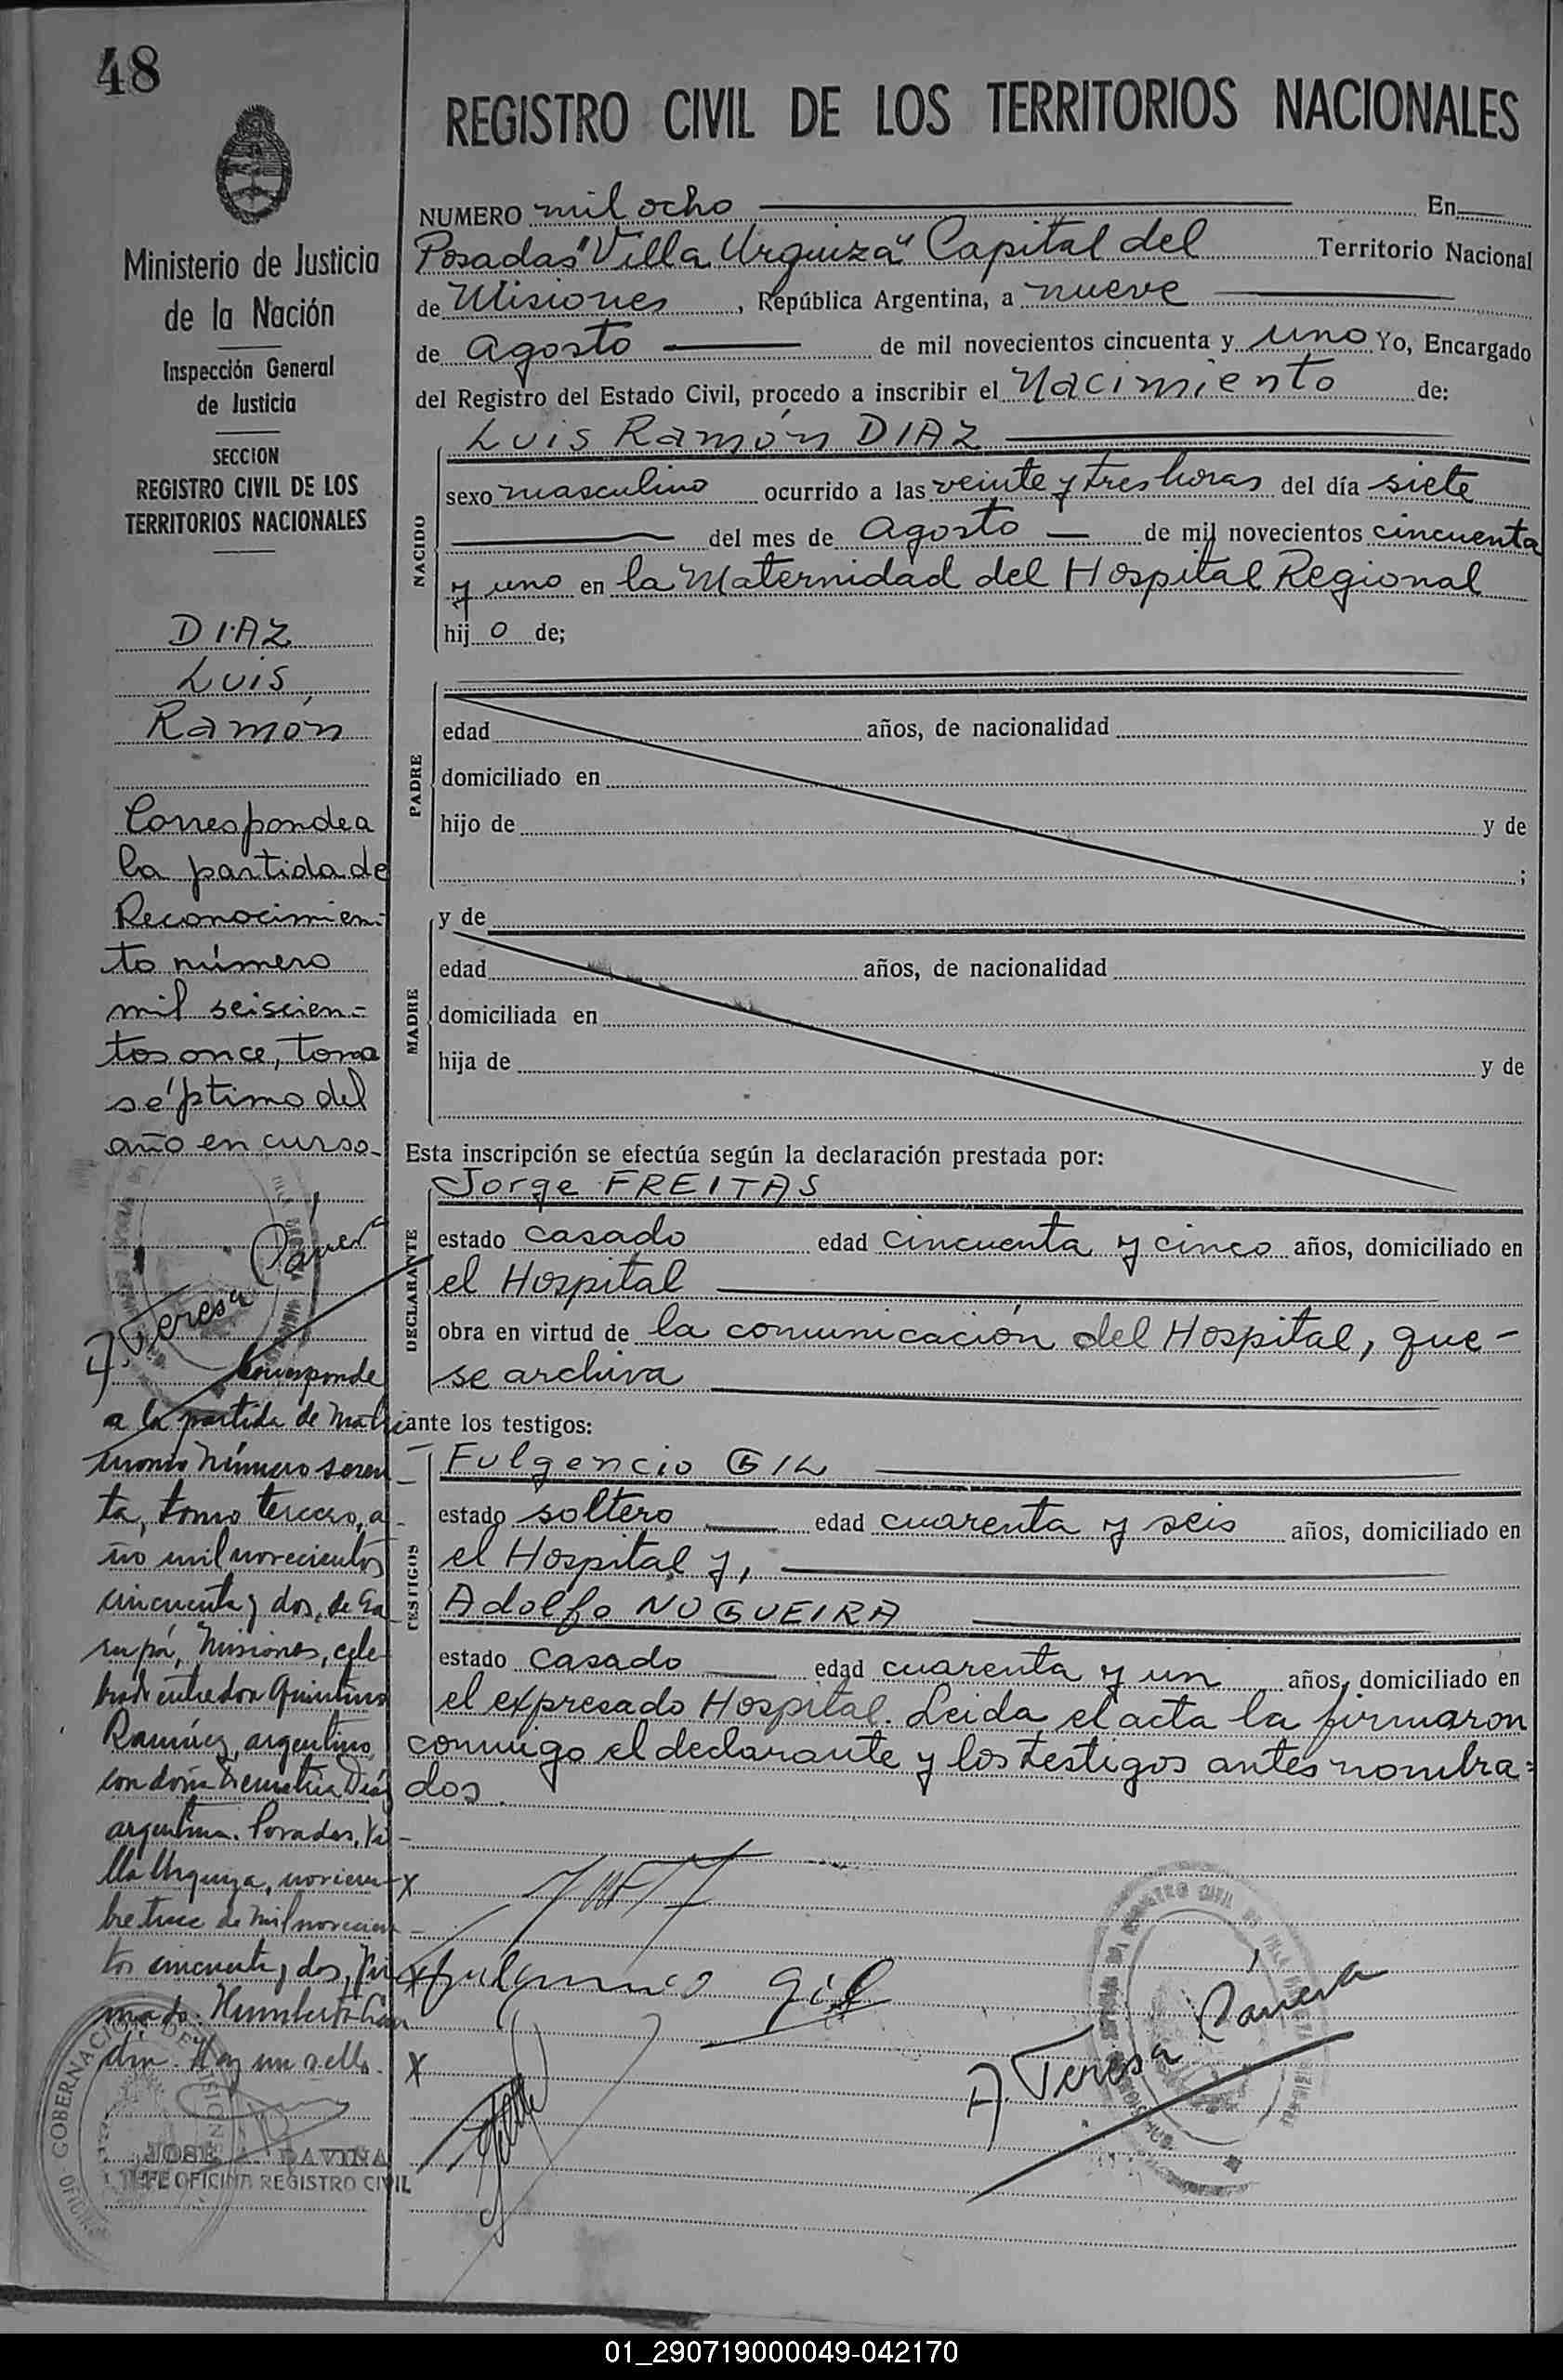 48
REGISTRO CIVIL DE LOS TERRITORIOS NACIONALES
Ministerio de Justicia
de la Nación
Inspección General
de Justicia
SECCION
REGISTRO CIVIL DE LOS
TERRITORIOS NACIONALES
DIAZ
Luis
Ramón
Corresponde a
la partida de
Reconocimien-
to número
mil seiscien-
tos once, tomo
séptimo del
año en curso-
A. Teresa
Corresponde
a la partida de Matri
monio Número seten
ta, tomo tercero, a-
ño mil novecientos
cincuenta y dos, de Ga
rupá, Misiones, cele
brado entre don Quintino
Ramírez, argentino,
con doña Demetria Díaz
argentina. Posadas, Vi-
lla Urquiza, noviem-
bre trece de mil novecien
tos cincuenta y dos, Fir
mado: Humberto
Hay un sello.
GOBERNACION DE MISIONES
JOSE A. DAVIÑA
JEFE OFICINA REGISTRO CIVIL
NUMERO mil ocho En
Posadas "Villa Urquiza" Capital del Territorio Nacional
de Misiones, República Argentina, a nueve
de Agosto de mil novecientos cincuenta y uno Yo, Encargado
del Registro del Estado Civil, procedo a inscribir el Nacimiento de:
NACIDO
Luis Ramón DIAZ
sexo masculino ocurrido a las veinte y tres horas del día siete
del mes de Agosto de mil novecientos cincuenta
y uno en la Maternidad del Hospital Regional
hij o de;
PADRE
edad años, de nacionalidad
domiciliado en
hijo de y de
;
MADRE
y de
edad años, de nacionalidad
domiciliada en
hija de y de
Esta inscripción se efectúa según la declaración prestada por:
DECLARANTE
Jorge FREITAS
estado casado edad cincuenta y cinco años, domiciliado en
el Hospital
obra en virtud de la comunicación del Hospital, que-
se archiva
ante los testigos:
TESTIGOS
Fulgencio GIL
estado soltero edad cuarenta y seis años, domiciliado en
el Hospital y,
Adolfo NOGUEIRA
estado casado edad cuarenta y un años, domiciliado en
el expresado Hospital. Leida el acta la firmaron
conmigo el declarante y los testigos antes nombra=
dos.
x
x Fulgencio Gil
x
A. Teresa
01_290719000049-042170